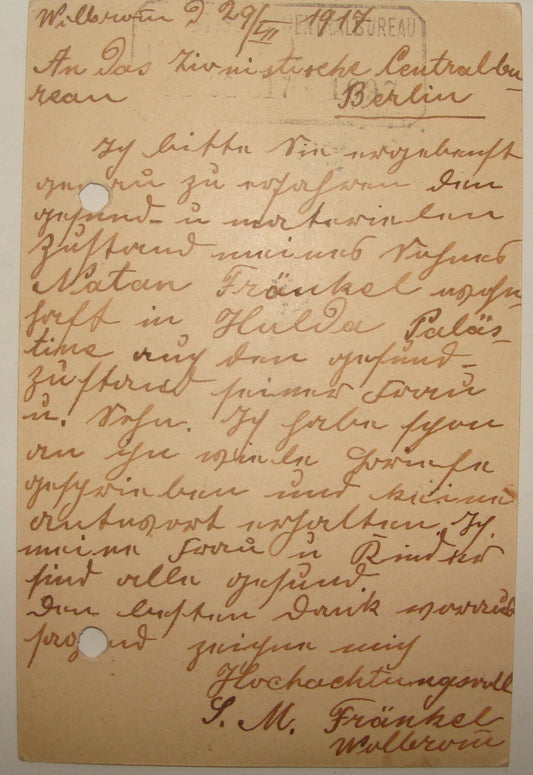 Wolbrom d 29/VII 1917
An das Zionistische Centralbu-
reau Berlin
Ich bitte Sie ergebenst
genau zu erfahren den
gesund- u materielen
Zustand meines Sohnes
Natan Fränkel wohn-
haft in Hulda Paläs-
tine auch den gesund-
zustand seiner Frau
u. Sohn. Ich habe schon
an ihn viele Briefe
geschrieben und keine
antwort erhalten. Ich
meine Frau u Kinder
sind alle gesund
den besten Dank voraus
sagend zeichne mich
Hochachtungsvoll
S. M. Fränkel
Wolbrom